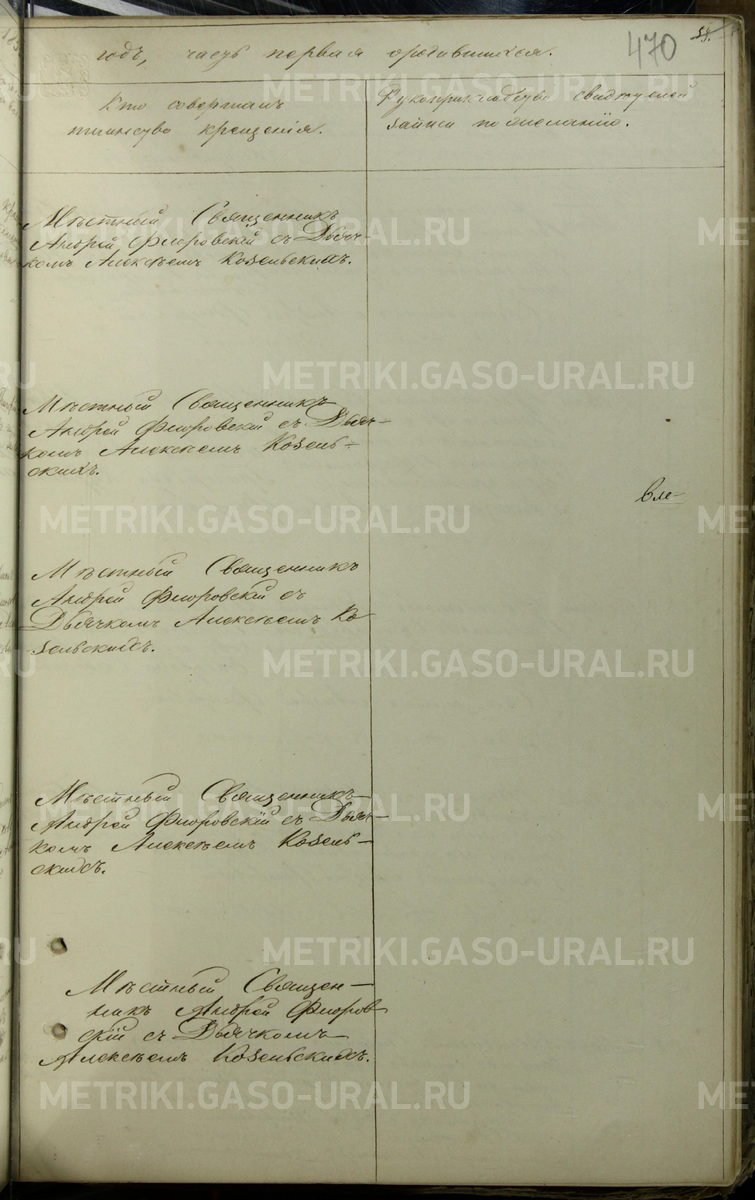 470
годъ, часть первая о родившихся.
Кто совершалъ
таинство крещенія.
Рукоприкладство свидѣтелей
записи по желанію.
Мѣстный Священникъ
Андрей Флоровскій съ Дьяч-
комъ Алексѣемъ Козельскихъ.
Мѣстный Священникъ
Андрей Флоровскій съ Дьяч-
комъ Алексѣемъ Козель-
скихъ.
Мѣстный Священникъ
Андрей Флоровскій съ
Дьячкомъ Алексѣемъ Ко
зельскихъ.
Мѣстный Священникъ
Андрей Флоровскій съ Дьяч-
комъ Алексѣемъ Козель-
скихъ.
Мѣстный Священ-
никъ Андрей Флоров-
скій съ Дьячкомъ
Алексѣемъ Козельскихъ.
METRIKI.GASO-URAL.RU